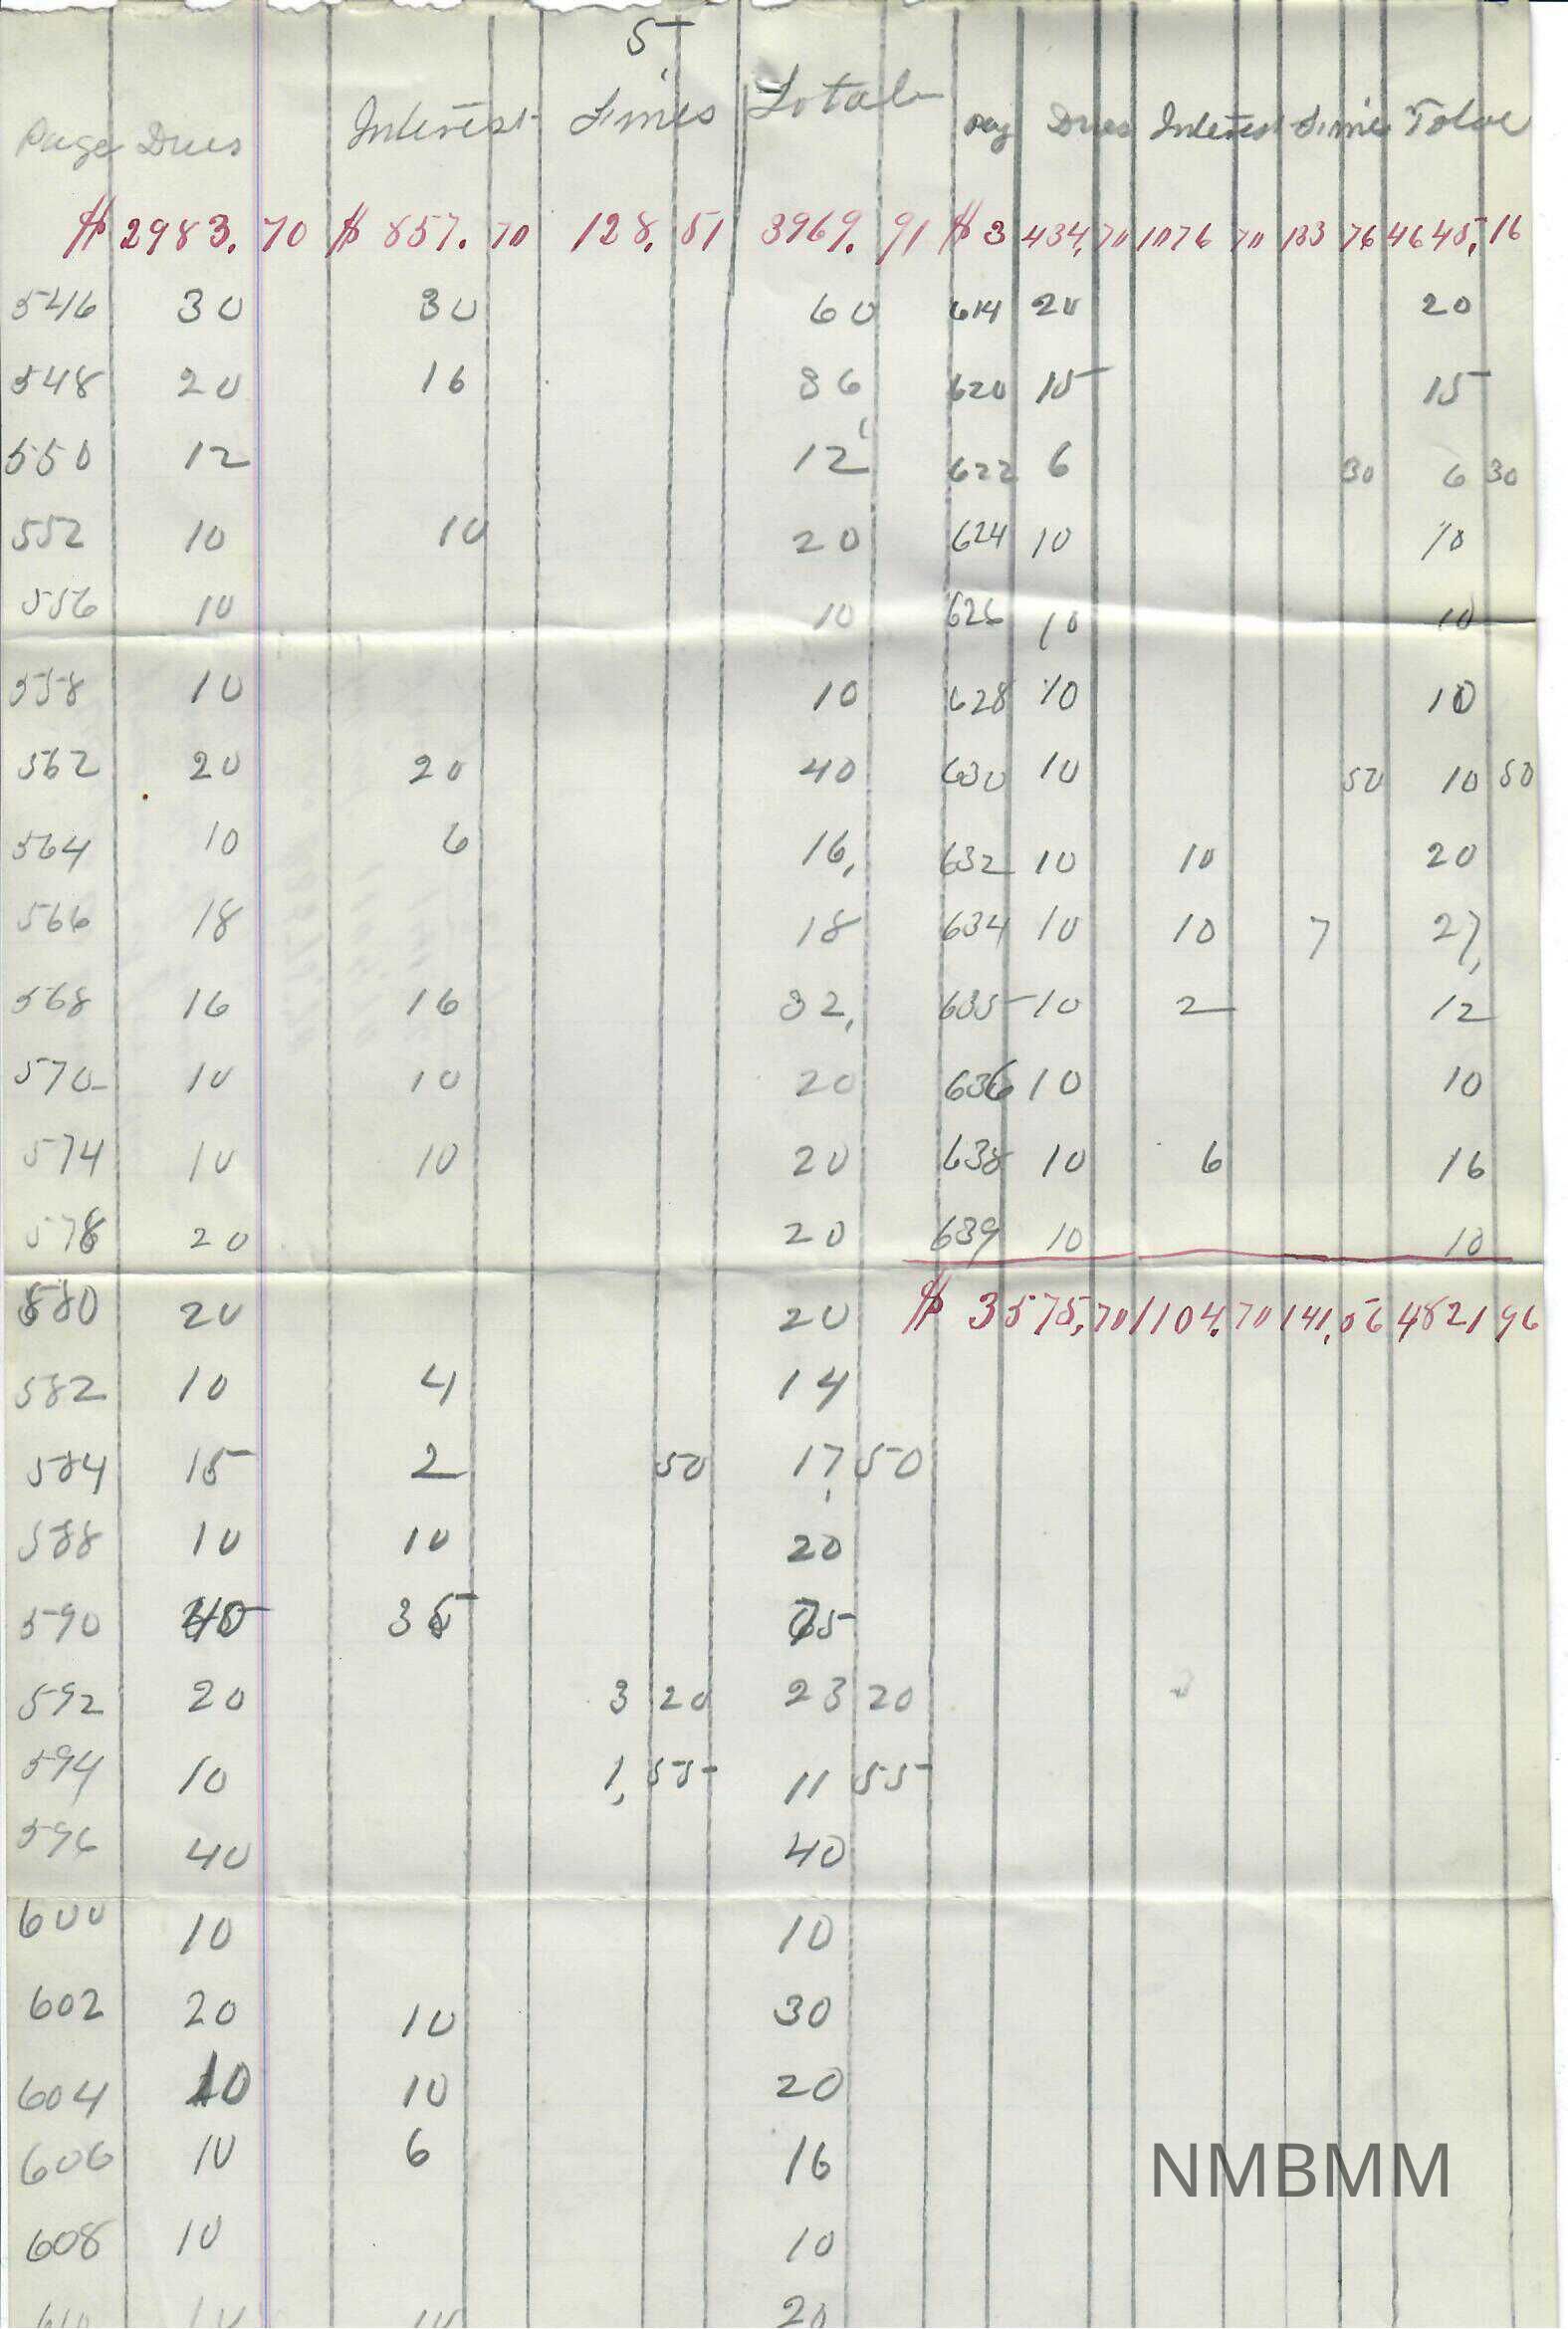 5
Page Dues Interest Fines Total Pag Dues Interest Fines Total
$ 2983. 70 $ 857. 70 128. 51 3969. 91 $ 3 434, 70 1076 70 133 76 4645, 16
546 30 30 60 614 20 20
548 20 16 36 620 15 15
550 12 12 622 6 30 6 30
552 10 10 20 624 10 10
556 10 10 626 10 10
558 10 10 628 10 10
562 20 20 40 630 10 50 10 50
564 10 6 16, 632 10 10 20
566 18 18 634 10 10 7 27,
568 16 16 32, 635 10 2 12
570 10 10 20 636 10 10
574 10 10 20 638 10 6 16
578 20 20 639 10 10
580 20 20 $ 3575, 70 1104. 70 141, 56 4821 96
582 10 4 14
584 15 2 50 17, 50
588 10 10 20
590 40 35 75
592 20 3 20 23 20
594 10 1, 55 11 55
596 40 40
600 10 10
602 20 10 30
604 10 10 20
606 10 6 16
608 10 10
610 10 10 20
NMBMM